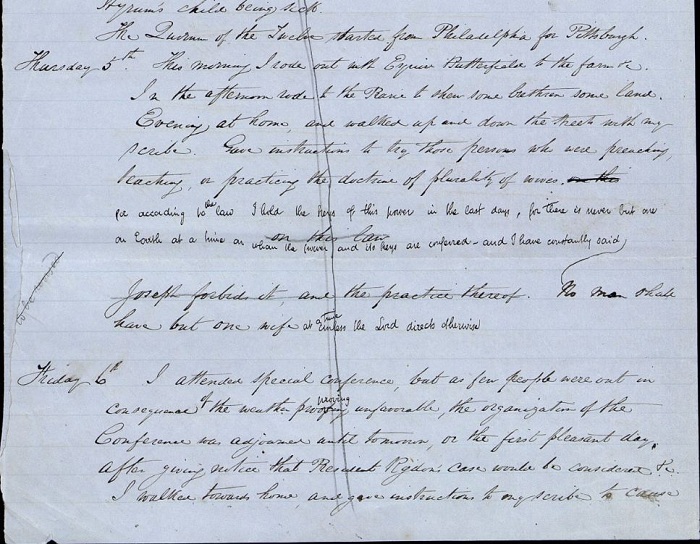 Hyrum's child being sick.
The Quorum of the Twelve started from Philadelphia for Pittsburgh.
Thursday 5th. This morning I rode out with Esquire Butterfield to the farm &c.
In the afternoon rode to the Prairie to shew some brethren some land.
Evening, at home, and walked up and down the streets with my
scribe. Gave instructions to try those persons who were preaching,
teaching, or practicing the doctrine of plurality of wives. on this
for according to the law I hold the keys of this power in the last days, for there is never but one
on Earth at a time on whom the power and its keys are conferred - and I have constantly said
on this law
Joseph forbids it, and the practice thereof. No man shall
have but one wife at a time unless the Lord directs otherwise
to be revised
Friday 6th I attended special conference, but as few people were out in
consequence of the weather proving unfavorable, the organization of the
Conference was adjourned until tomorrow, or the first pleasant day,
after giving notice that President Rigdon's case would be considered &c.
I walked towards home and gave instructions to my scribe to cause